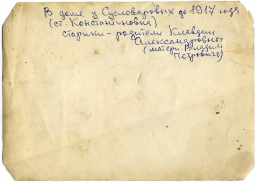 В доме у Сусловаровых до 1917 года
(ст. Константиновка)
старики - родители Клавдии
Александровны
(матери Владим.
Петровича)